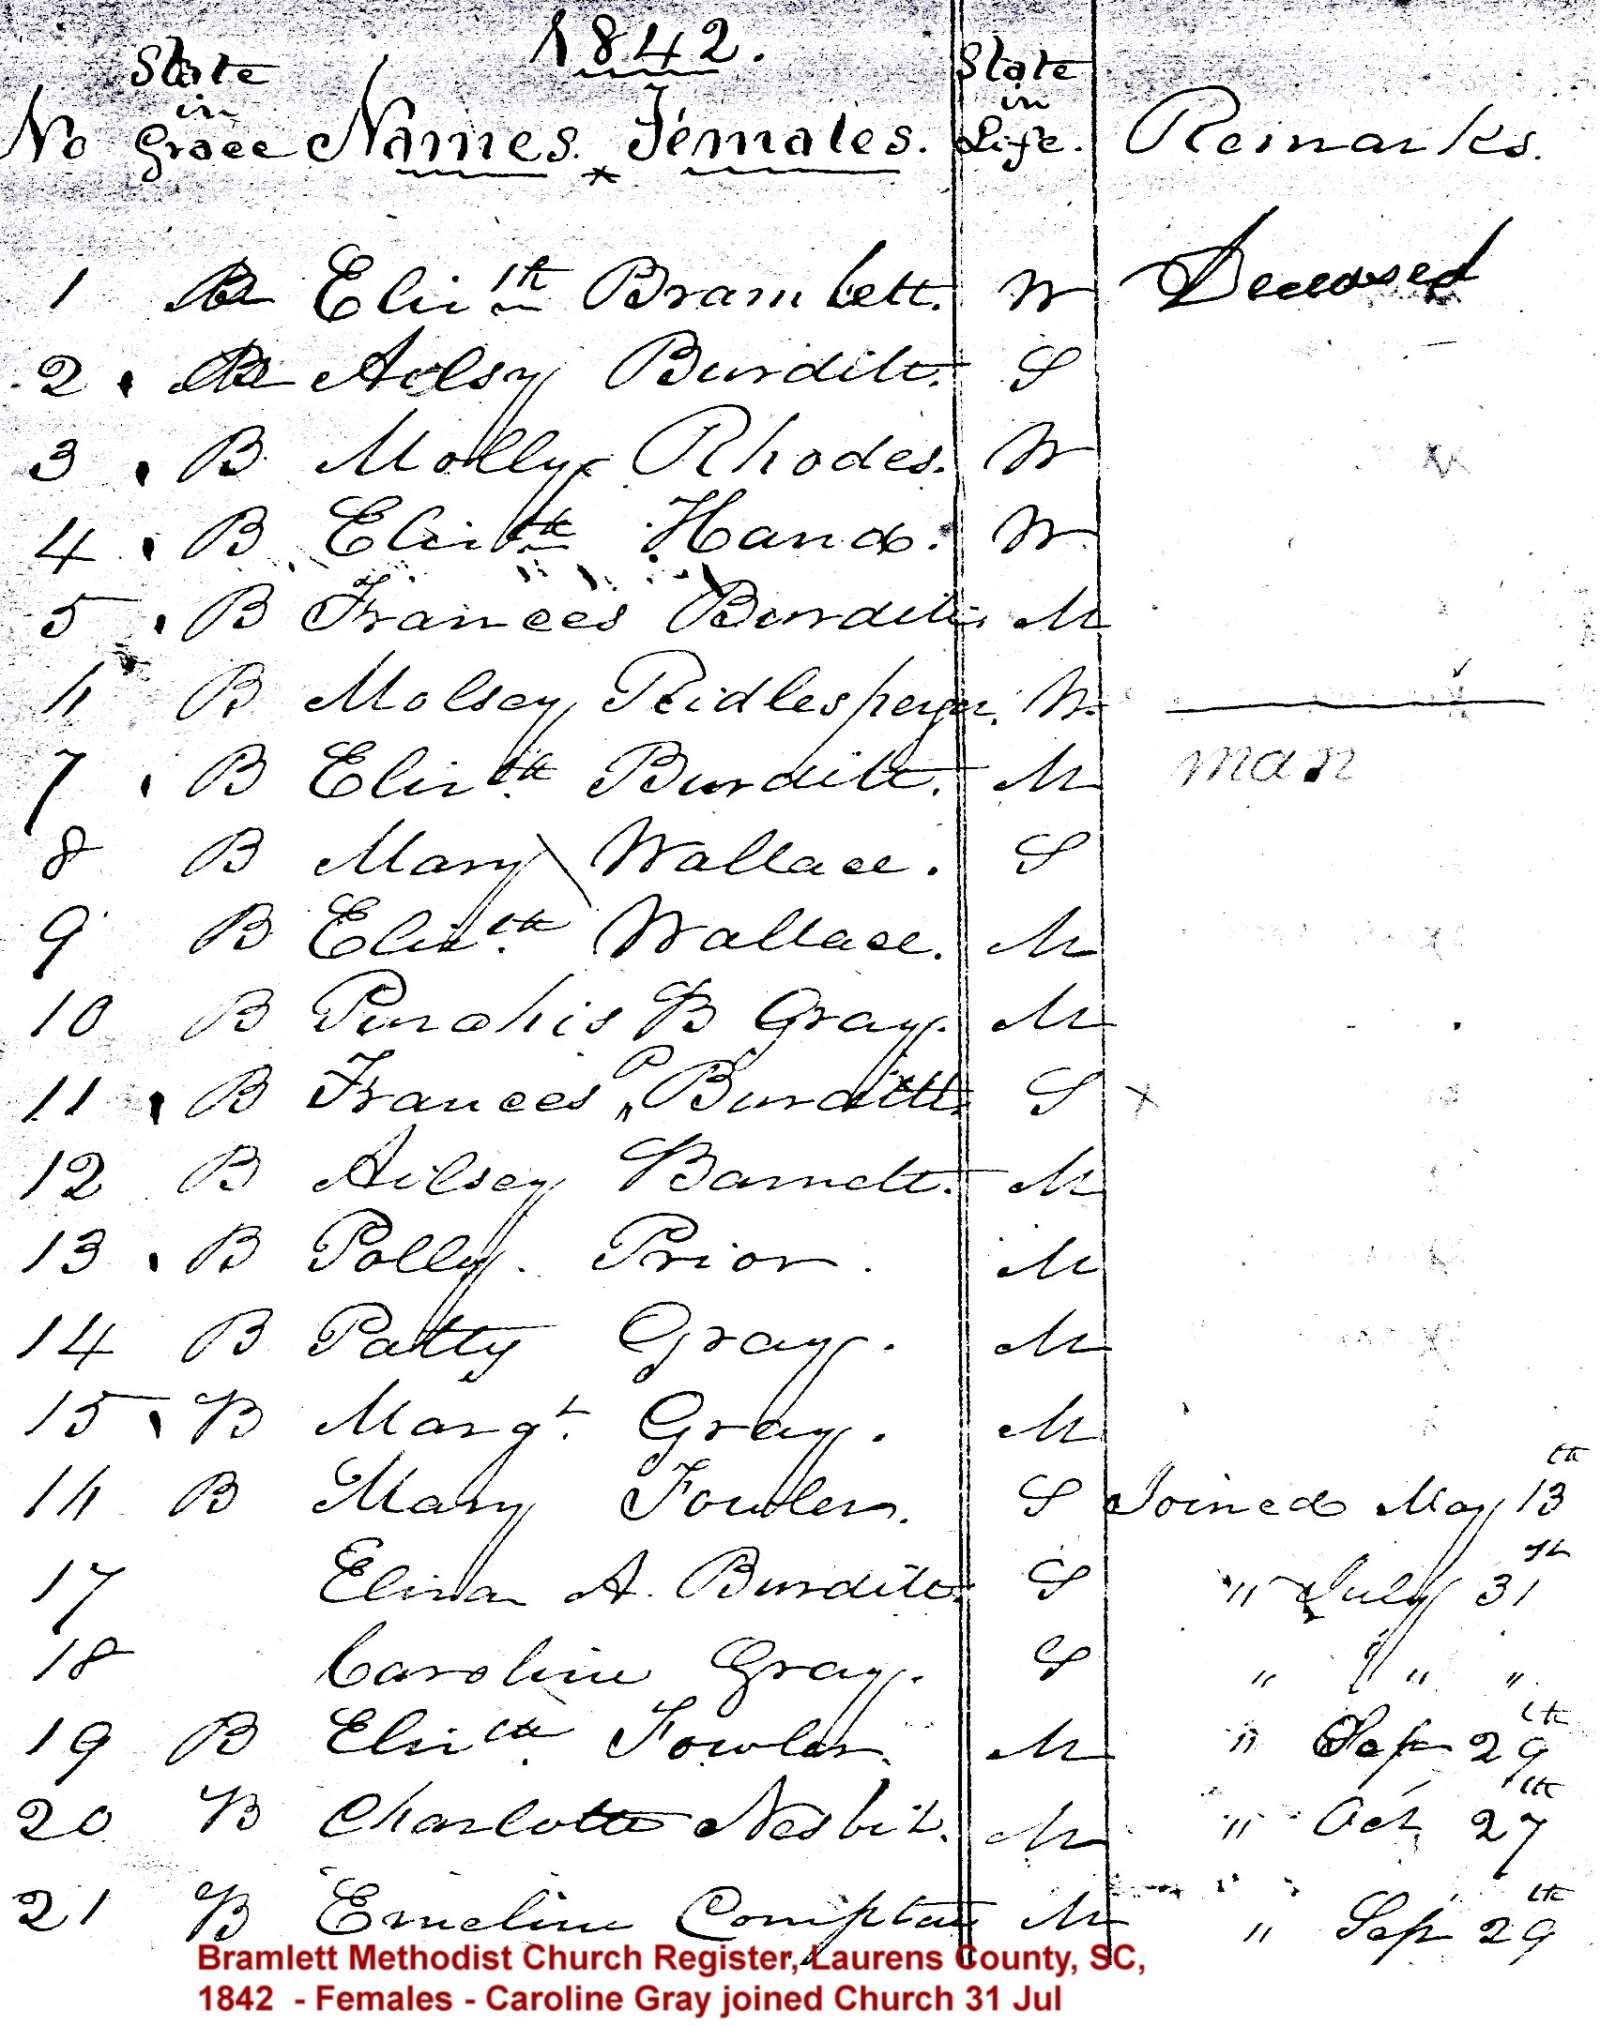 1842.
No State in Grace Names. Females. State in Life. Remarks.
1 B Eliz.th Bramlett. W Deceased
2 B Ailsy Burditt. S
3 B Molly Rhodes. W
4 B Eliz.th Hand. W
5 B Frances Burditt. M
6 B Molsey Ridlesperger. W.
7 B Eliz.th Burditt. M man
8 B Mary Wallace. S
9 B Eliz.th Wallace. M
10 B B Gray. M
11 B Frances P Burditt. S x
12 B Ailsey Barnett. M
13 B Polly. Prior. M
14 B Patty Gray. M
15 B Marg.t Gray. M
16 B Mary Fowler. S Joined May 13th
17 Eliza A. Burditt. S " July 31st
18 Caroline Gray. S " " "
19 B Eliz.th Fowler. M " Sep 29th
20 B Charlotte Nesbit. M " Oct 27th
21 B Emeline Compton M " Sep 29th
Bramlett Methodist Church Register, Laurens County, SC,
1842 - Females - Caroline Gray joined Church 31 Jul